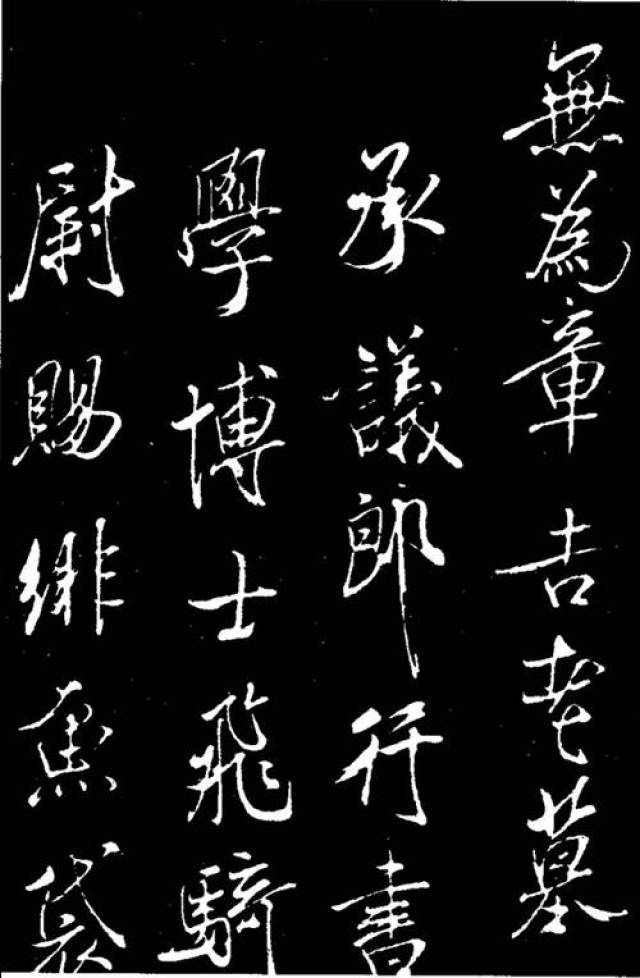 無為章吉老墓
承議郎行書
學博士飛騎
尉賜緋魚袋